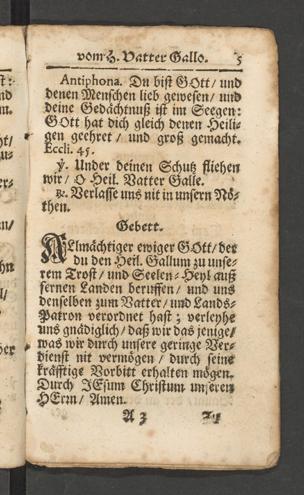 vom H. Vatter Gallo. 5
Antiphona. Du bist GOtt / und
denen Menschen lieb gewesen / und
deine Gedächtnuß ist im Seegen:
GOtt hat dich gleich denen Heili-
gen geehret / und groß gemacht.
Eccli. 45.
℣. Under deinen Schutz fliehen
wir / O Heil. Vatter Galle.
℟. Verlasse uns nit in unsern Nö-
then.
Gebett.
ALmächtiger ewiger GOtt / der
du den Heil. Gallum zu unse-
rem Trost / und Seelen-Heyl auß
fernen Landen beruffen / und uns
denselben zum Vatter / und Lands-
Patron verordnet hast ; verleyhe
uns gnädiglich / daß wir das jenige /
was wir durch unsere geringe Ver-
dienst nit vermögen / durch seine
kräfftige Vorbitt erhalten mögen.
Durch JEsum Christum unseren
HErrn / Amen.
A 3